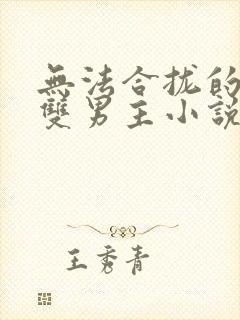 無法合拢的
雙男主小說
王秀青